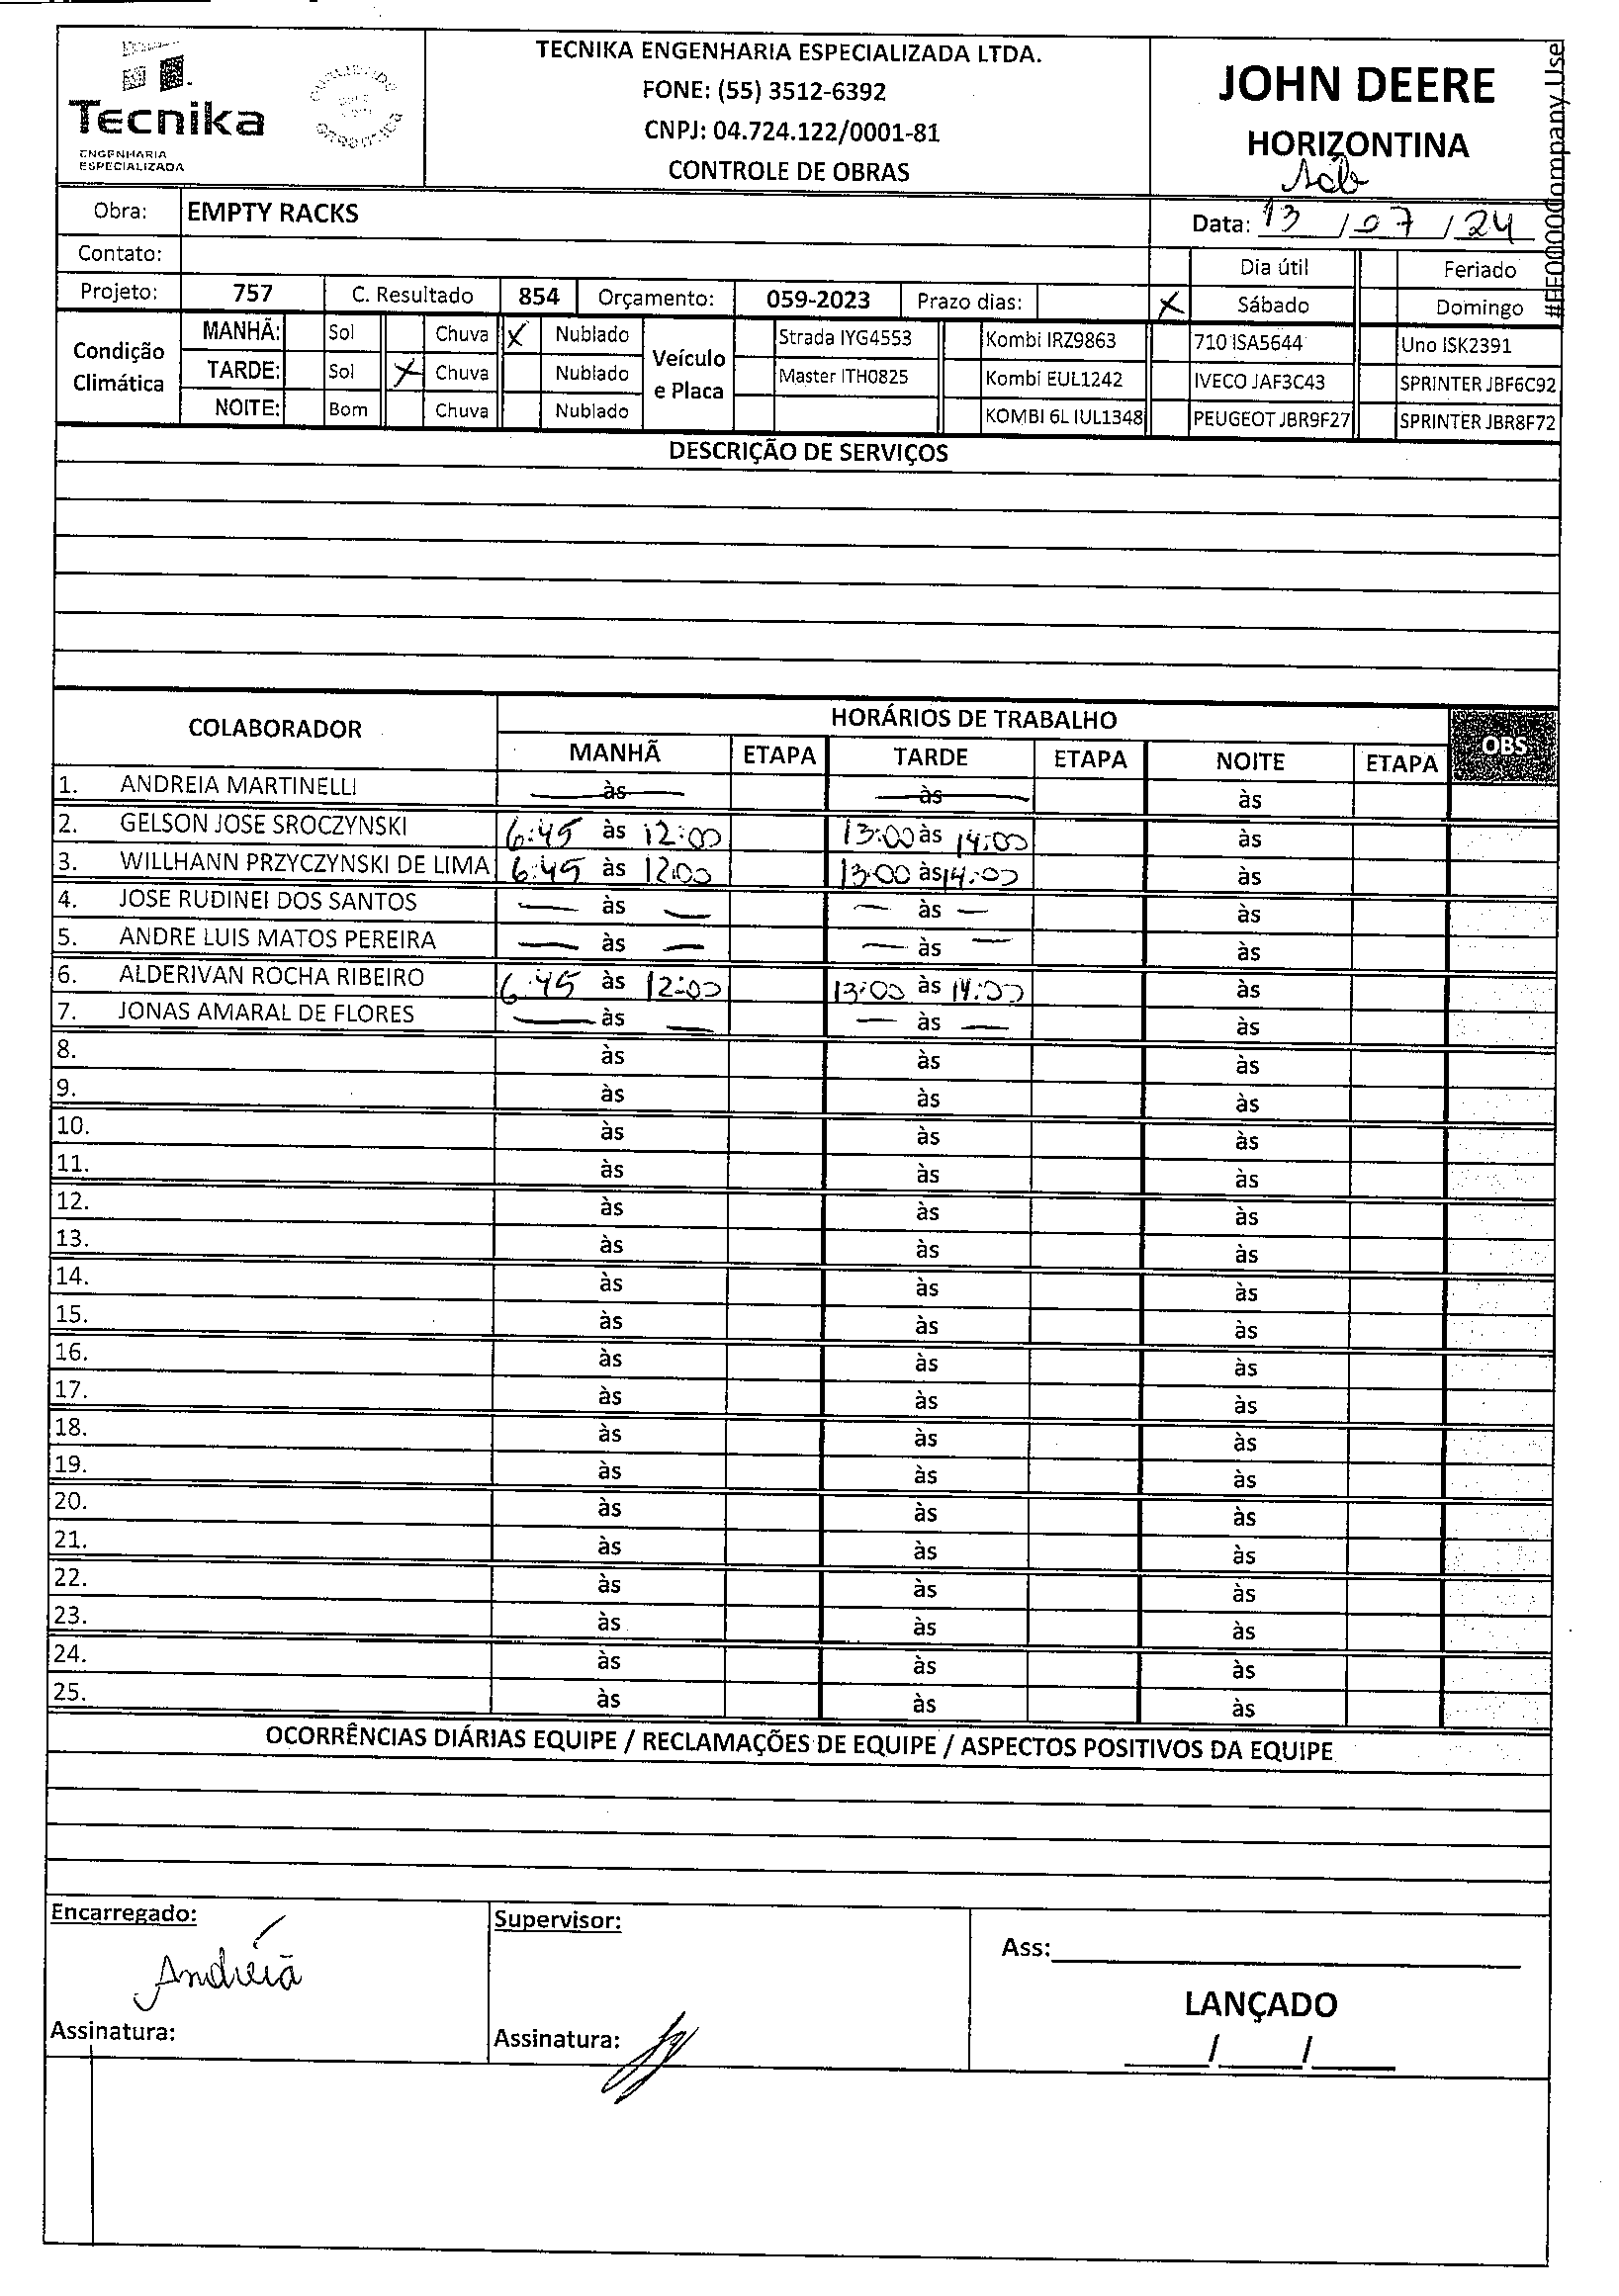 Tecnika
ENGENHARIA
ESPECIALIZADA
TECNIKA ENGENHARIA ESPECIALIZADA LTDA.
FONE: (55) 3512-6392
CNPJ: 04.724.122/0001-81
CONTROLE DE OBRAS
JOHN DEERE
HORIZONTINA
Sáb
Obra: EMPTY RACKS
Data: 13 / 07 / 24
Contato:
Dia útil Feriado
Projeto: 757 C. Resultado 854 Orçamento: 059-2023 Prazo dias: X Sábado Domingo
Condição Climática
MANHÃ: Sol Chuva X Nublado
TARDE: Sol X Chuva Nublado
NOITE: Bom Chuva Nublado
Veículo e Placa
Strada IYG4553 Kombi IRZ9863 710 ISA5644 Uno ISK2391
Master ITH0825 Kombi EUL1242 IVECO JAF3C43 SPRINTER JBF6C92
KOMBI 6L IUL1348 PEUGEOT JBR9F27 SPRINTER JBR8F72
DESCRIÇÃO DE SERVIÇOS
COLABORADOR HORÁRIOS DE TRABALHO OBS
MANHÃ ETAPA TARDE ETAPA NOITE ETAPA
1. ANDREIA MARTINELLI às às às
2. GELSON JOSE SROCZYNSKI 6:45 às 12:00 13:00 às 14:00 às
3. WILLHANN PRZYCZYNSKI DE LIMA 6:45 às 12:00 13:00 às 14:00 às
4. JOSE RUDINEI DOS SANTOS — às — — às — às
5. ANDRE LUIS MATOS PEREIRA — às — — às — às
6. ALDERIVAN ROCHA RIBEIRO 6:45 às 12:00 13:00 às 14:00 às
7. JONAS AMARAL DE FLORES — às — — às — às
8. às às às
9. às às às
10. às às às
11. às às às
12. às às às
13. às às às
14. às às às
15. às às às
16. às às às
17. às às às
18. às às às
19. às às às
20. às às às
21. às às às
22. às às às
23. às às às
24. às às às
25. às às às
OCORRÊNCIAS DIÁRIAS EQUIPE / RECLAMAÇÕES DE EQUIPE / ASPECTOS POSITIVOS DA EQUIPE
Encarregado:
Andréia
Assinatura:
Supervisor:
Assinatura:
Ass:
LANÇADO
/ /